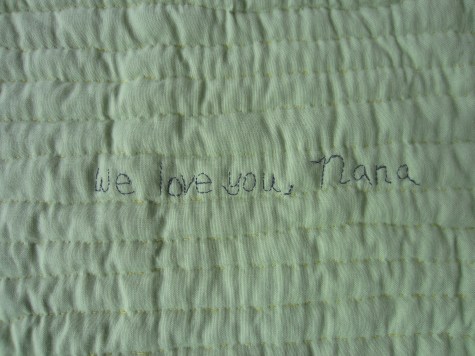 We love you, Nana